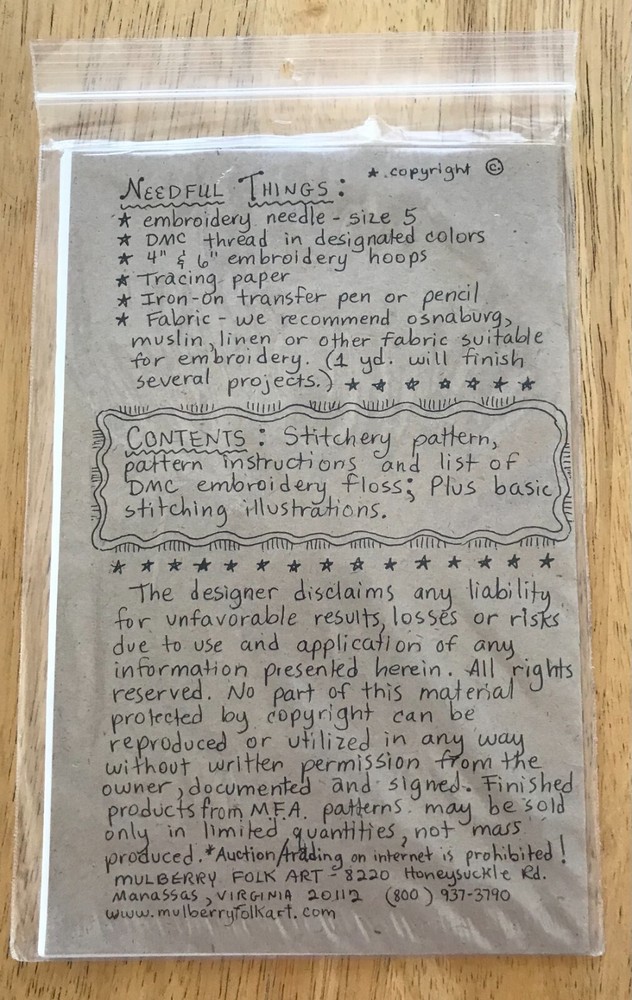 NEEDFUL THINGS: * copyright ©
* embroidery needle - size 5
* DMC thread in designated colors
* 4" & 6" embroidery hoops
* Tracing paper
* Iron-on transfer pen or pencil
* Fabric - we recommend osnaburg,
muslin, linen or other fabric suitable
for embroidery. (1 yd. will finish
several projects.) * * * * * * *
CONTENTS: Stitchery pattern,
pattern instructions and list of
DMC embroidery floss; Plus basic
stitching illustrations.
* * * * * * * * * * * * * * *
The designer disclaims any liability
for unfavorable results, losses or risks
due to use and application of any
information presented herein. All rights
reserved. No part of this material
protected by copyright can be
reproduced or utilized in any way
without written permission from the
owner, documented and signed. Finished
products from M.F.A. patterns may be sold
only in limited quantities, not mass
produced. *Auction/trading on internet is prohibited!
MULBERRY FOLK ART - 8220 Honeysuckle Rd.
MANASSAS, VIRGINIA 20112 (800) 937-3790
www.mulberryfolkart.com